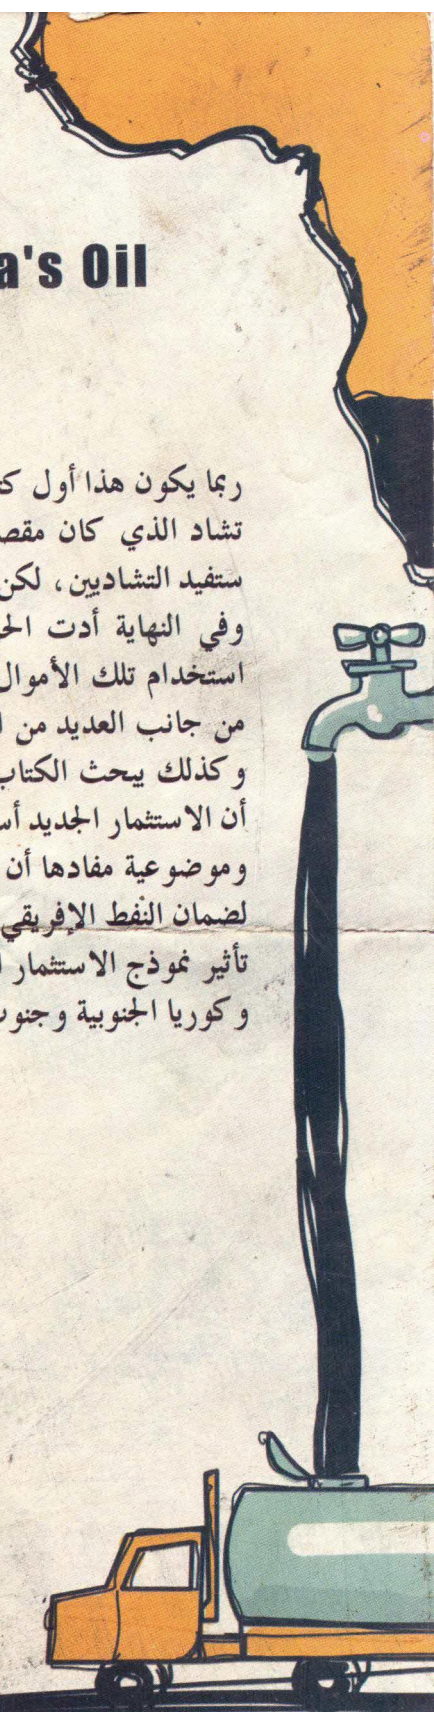 a's Oil
ربما يكون هذا أول كتـ
تشاد الذي كان مقصـ
ستفيد التشاديين، لكن
وفي النهاية أدت الحـ
استخدام تلك الأموال
من جانب العديد من ا
وكذلك يبحث الكتاب
أن الاستثمار الجديد أسـ
وموضوعية مفادها أن
لضمان النفط الإفريقي
تأثير نموذج الاستثمار ا
وكوريا الجنوبية وجنوب